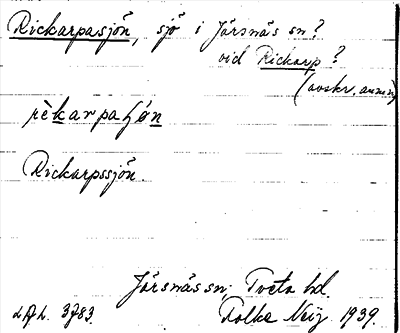 Rickarpasjön, sjö i Järsnäs sn?
vid Rickarp?
(avskr. anm.)
rèkarpaʃøn
Rickarpssjön.
Järsnäs sn, Tveta hd.
3783. Folke Neij 1939.